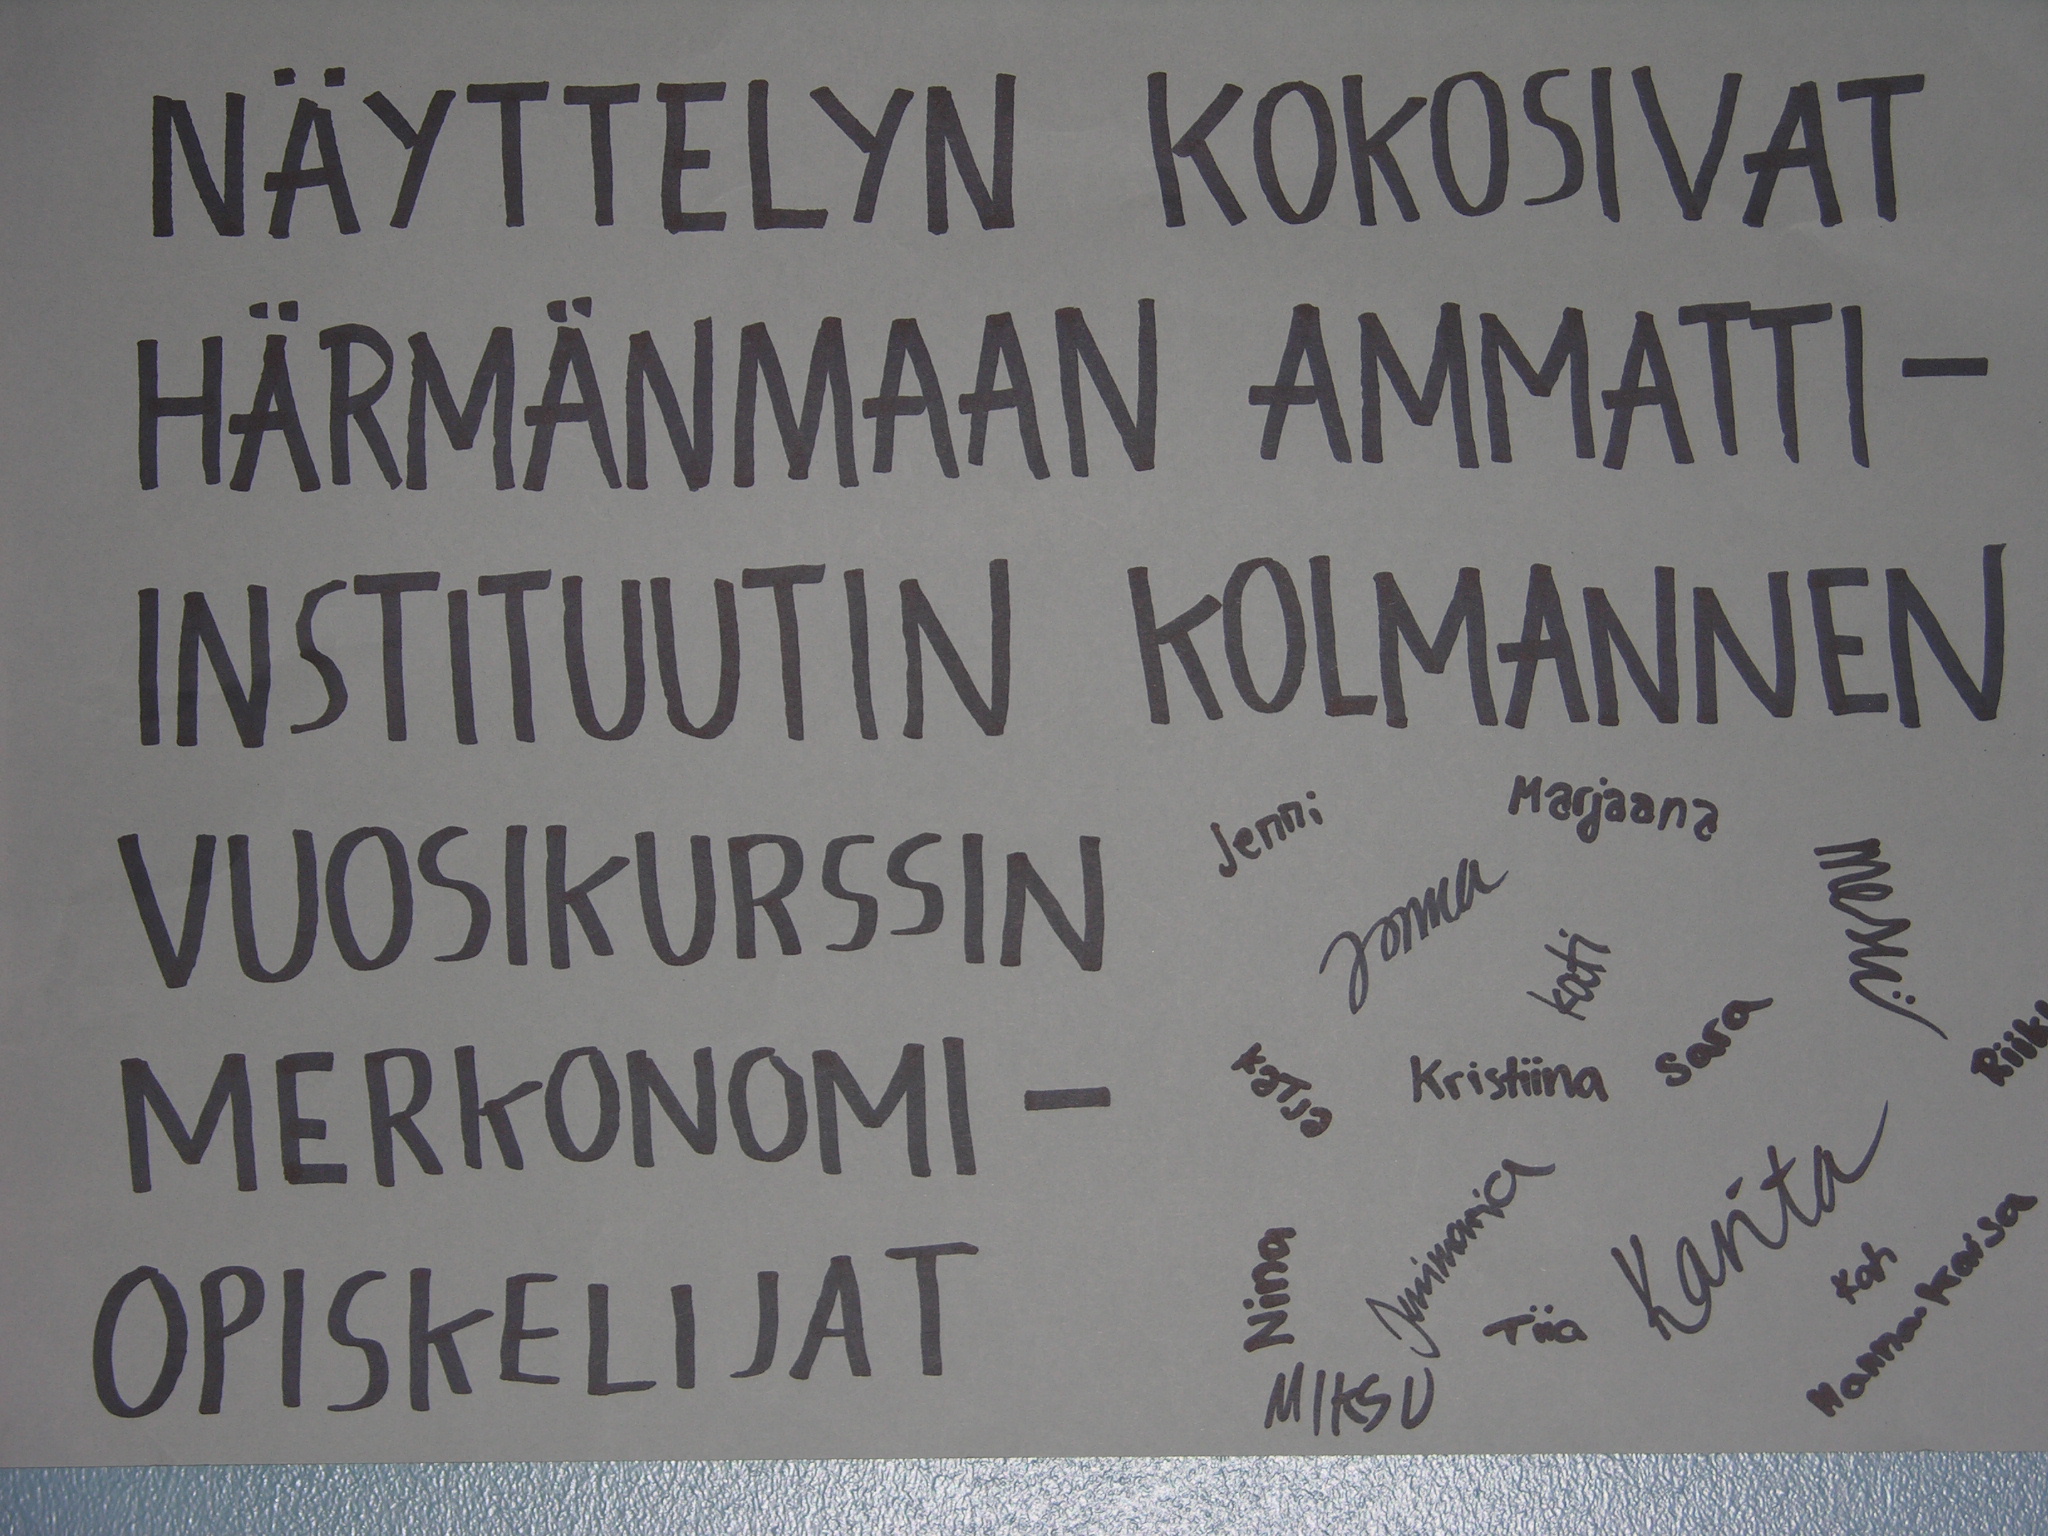 NÄYTTELYN KOKOSIVAT
HÄRMÄNMAAN AMMATTI-
INSTITUUTIN KOLMANNEN
VUOSIKURSSIN
MERKONOMI-
OPISKELIJAT
Jenni
Marjaana
Jonna
Kati
Sara
Katja
Kristiina
Nina
Tiia
Karita
Hanna-Kaisa
MIKSU